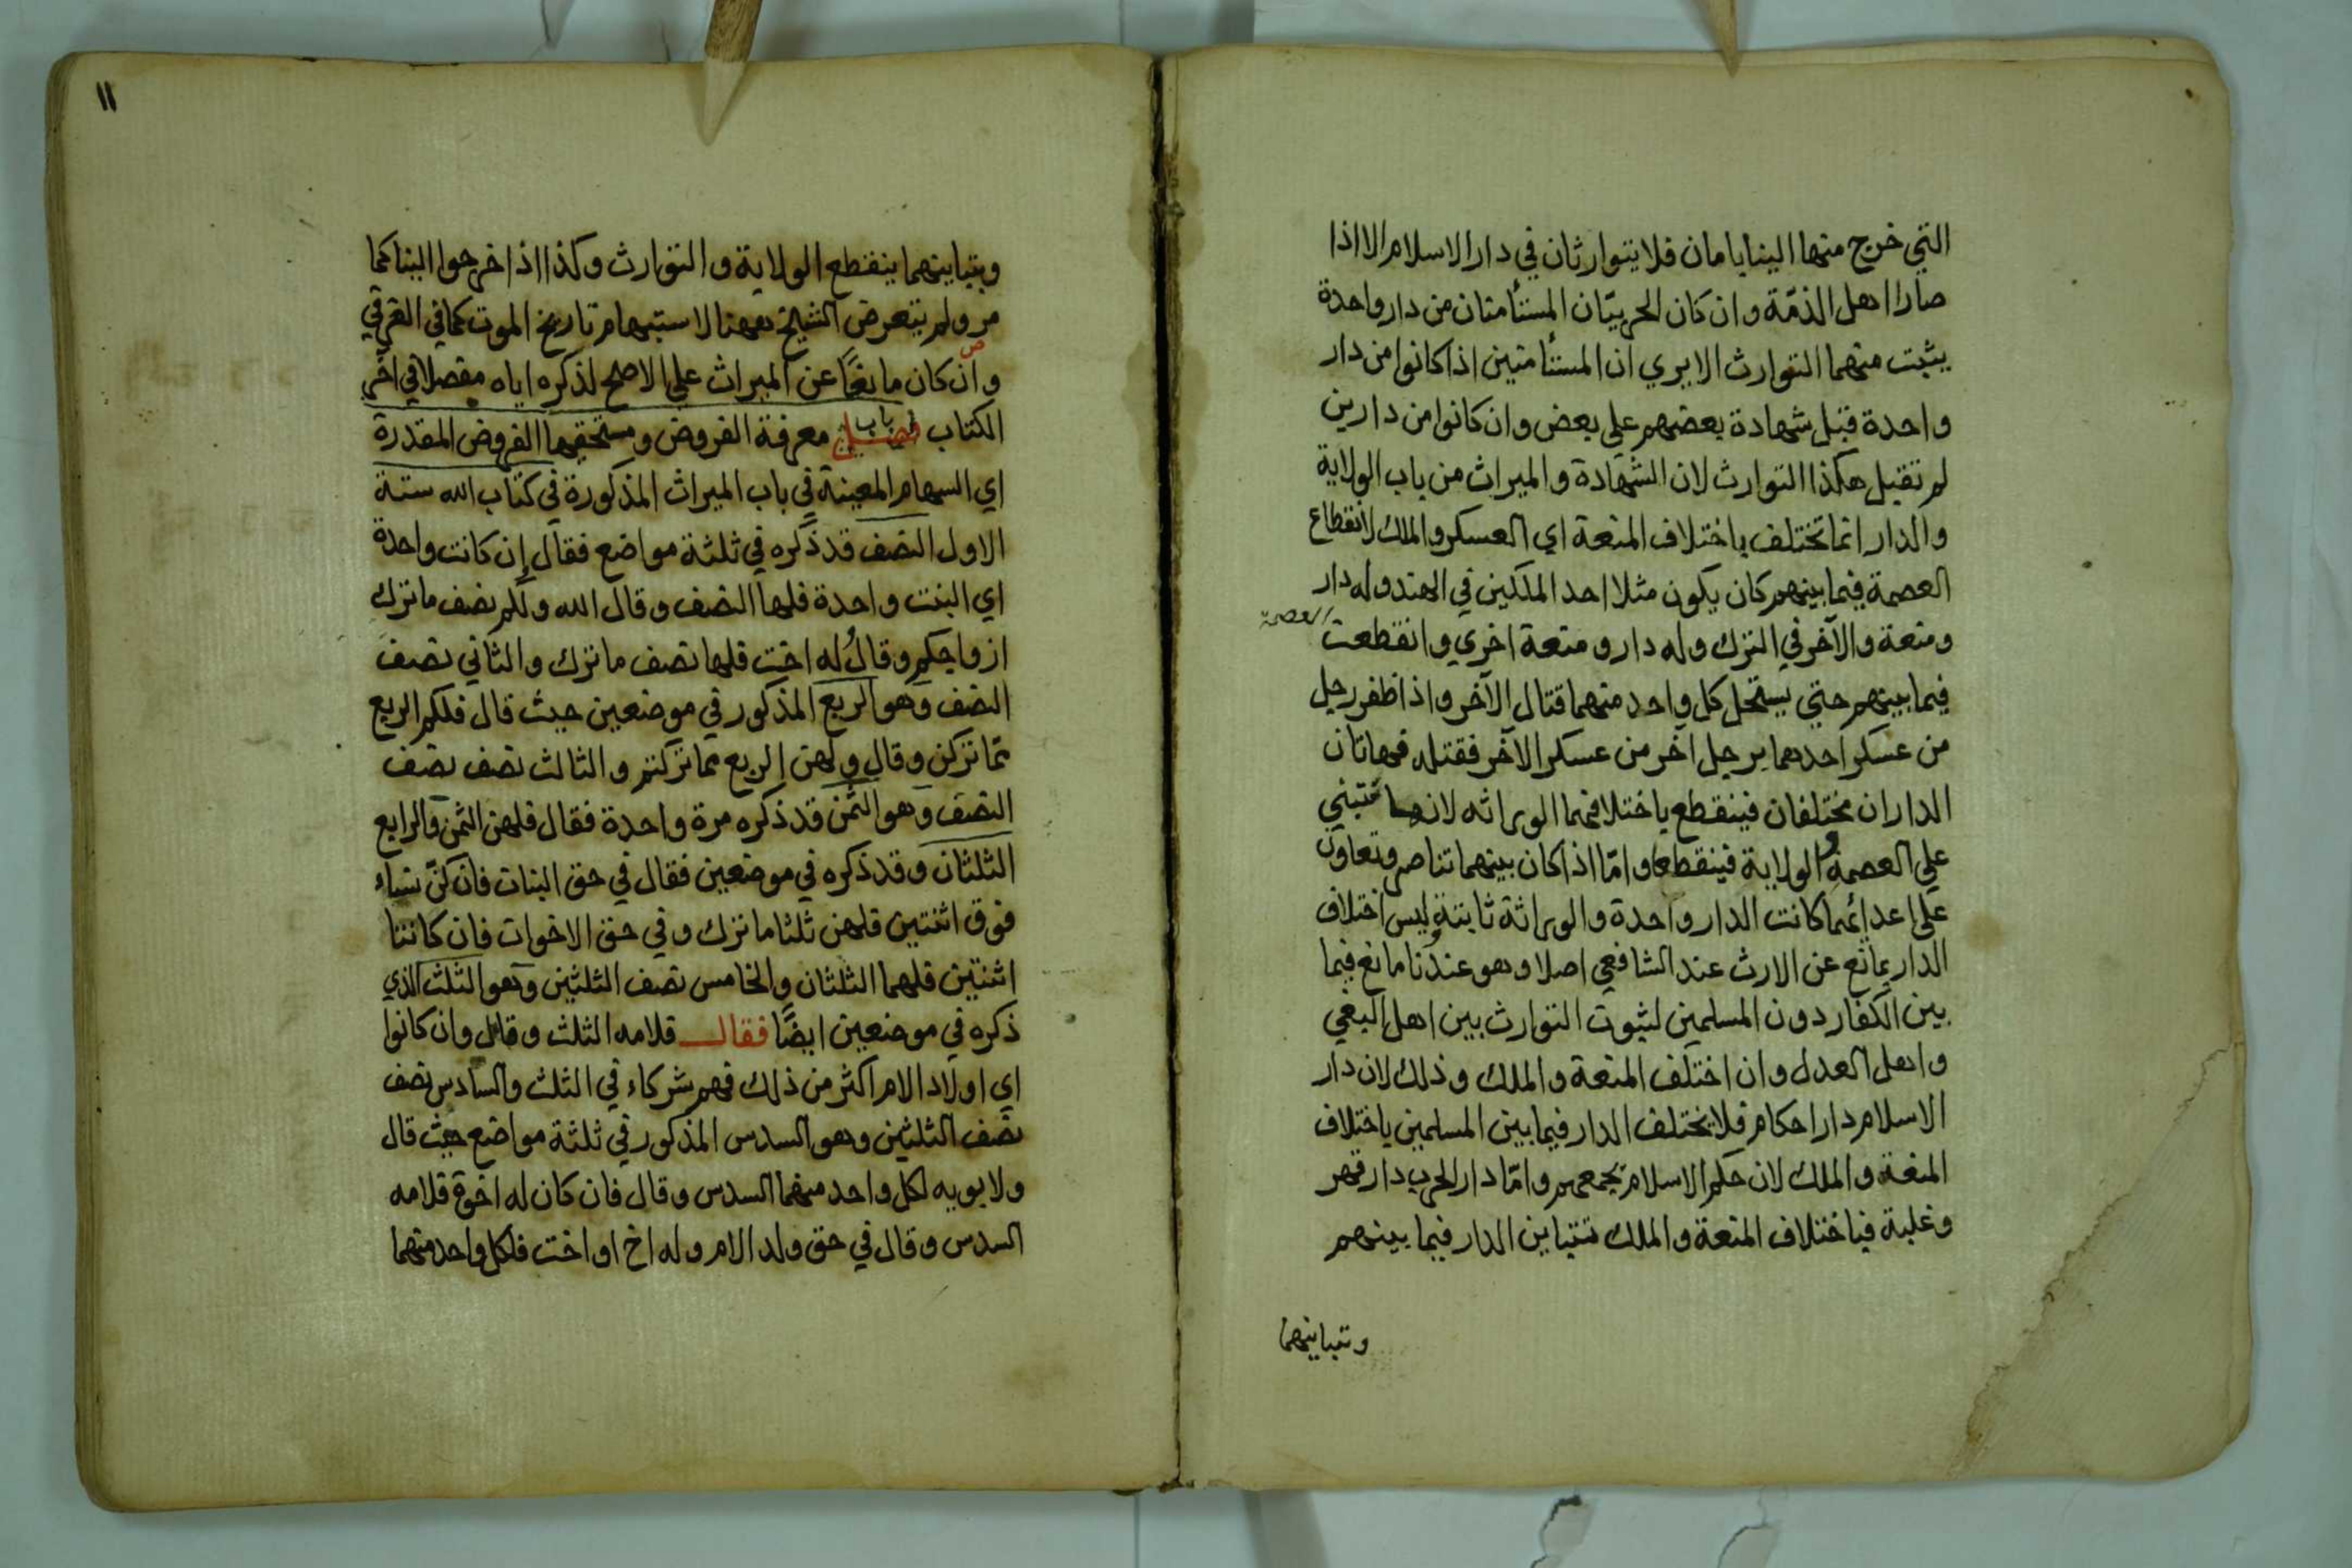 التي خرج منها الينا بامان فلا يتوارثان في دار الاسلام الا اذا
صارا اهل الذمّة وان كان الحربيّان المستأمنان من دار واحدة
يثبت منهما التوارث الا يري ان المستأمنين اذا كانوا من دار
واحدة قبل شهادة بعضهم علي بعض وان كانوا من دارين
لم تقبل هكذا التوارث لان الشهادة والميراث من باب الولاية
والدار انما تختلف باختلاف المنعة اي العسكر والملك لانقطاع
العصمة فيما بينهم كان يكون مثلا احد الملكين في الهند وله دار
ومنعة والآخر في الترك وله دار ومنعة اخري وانقطعت العصمة
فيما بينهم حتي يستحل كل واحد منهما قتال الآخر واذا ظفر رجل
من عسكر احدهما برجل آخر من عسكر الآخر فقتله فهاتان
الداران مختلفان فينقطع باختلافهما الوراثه لانها تبتني
علي العصمة والولاية فينقطعا وامّا اذا كان بينهما تناصر وتعاون
علي اعدائهما كانت الدار واحدة والوراثة ثابتة وليس اختلاف
الدار بمانع عن الارث عند الشافعي اصلا وهو عندنا مانع فيما
بين الكفار دون المسلمين لثبوت التوارث بين اهل البغي
واهل العدل وان اختلف المنعة والملك وذلك لان دار
الاسلام دار احكام فلا يختلف الدار فيما بين المسلمين باختلاف
المنعة والملك لان حكم الاسلام يجمعهم وامّا دار الحرب دار قهر
وغلبة فباختلاف المنعة والملك تتباين الدار فيما بينهم
وبتباينهما
١١
وبتباينهما ينقطع الولاية والتوارث وكذا اذا خرجوا الينا كما
مر ولم يتعرض الشيخ ههنا لاستبهام تاريخ الموت كما في الغرقي
وان كان مانعًا عن الميراث علي الاصح لذكره اياه مفصلا في آخر
الكتاب باب معرفة الفروض ومستحقيها الفروض المقدرة
اي السهام المعينة في باب الميراث المذكورة في كتاب الله ستة
الاول النصف قد ذكره في ثلثة مواضع فقال ان كانت واحدة
اي البنت واحدة فلها النصف وقال الله ولكم نصف ما ترك
ازواجكم وقال له اخت فلها نصف ما ترك والثاني نصف
النصف وهو الربع المذكور في موضعين حيث قال فلكم الربع
ممّا تركن وقال ولهن الربع مما تركتم والثالث نصف نصف
النصف وهو الثمن قد ذكره مرة واحدة فقال فلهن الثمن والرابع
الثلثان وقد ذكره في موضعين فقال في حق البنات فان كنّ نساء
فوق اثنتين فلهن ثلثا ما ترك وفي حق الاخوات فان كانتا
اثنتين فلهما الثلثان والخامس نصف الثلثين وهو الثلث الذي
ذكره في موضعين ايضًا فقال فلامه الثلث وقال وان كانوا
اي اولاد الام اكثر من ذلك فهم شركاء في الثلث والسادس نصف
نصف الثلثين وهو السدس المذكور في ثلثة مواضع حيث قال
ولابويه لكل واحد منهما السدس وقال فان كان له اخوة فلامه
السدس وقال في حق ولد الام وله اخ او اخت فلكل واحد منهما